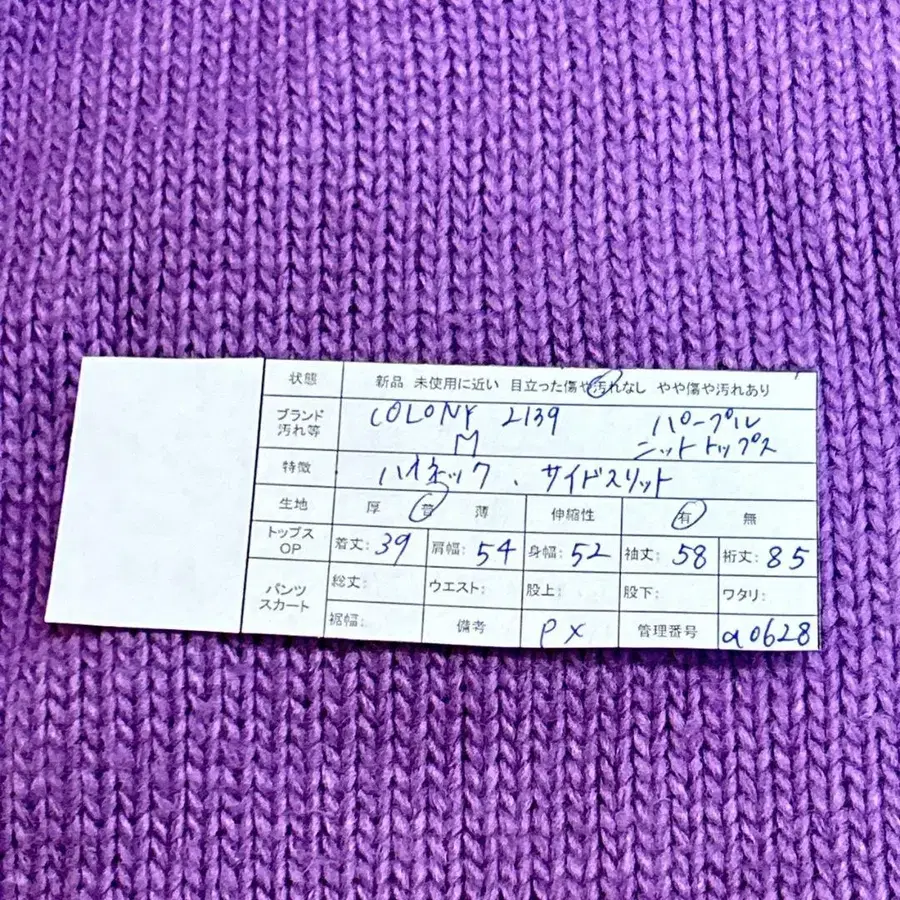 状態 新品 未使用に近い 目立った傷や汚れなし やや傷や汚れあり
ブランド 汚れ等 COLONY 2139 パープル
M ニットトップス
特徴 ハイネック、サイドスリット
生地 厚 普 薄 伸縮性 有 無
トップス OP 着丈:39 肩幅:54 身幅:52 袖丈:58 裄丈:85
パンツ スカート 総丈: ウエスト: 股上: 股下: ワタリ:
裾幅: 備考 P x 管理番号 a0628